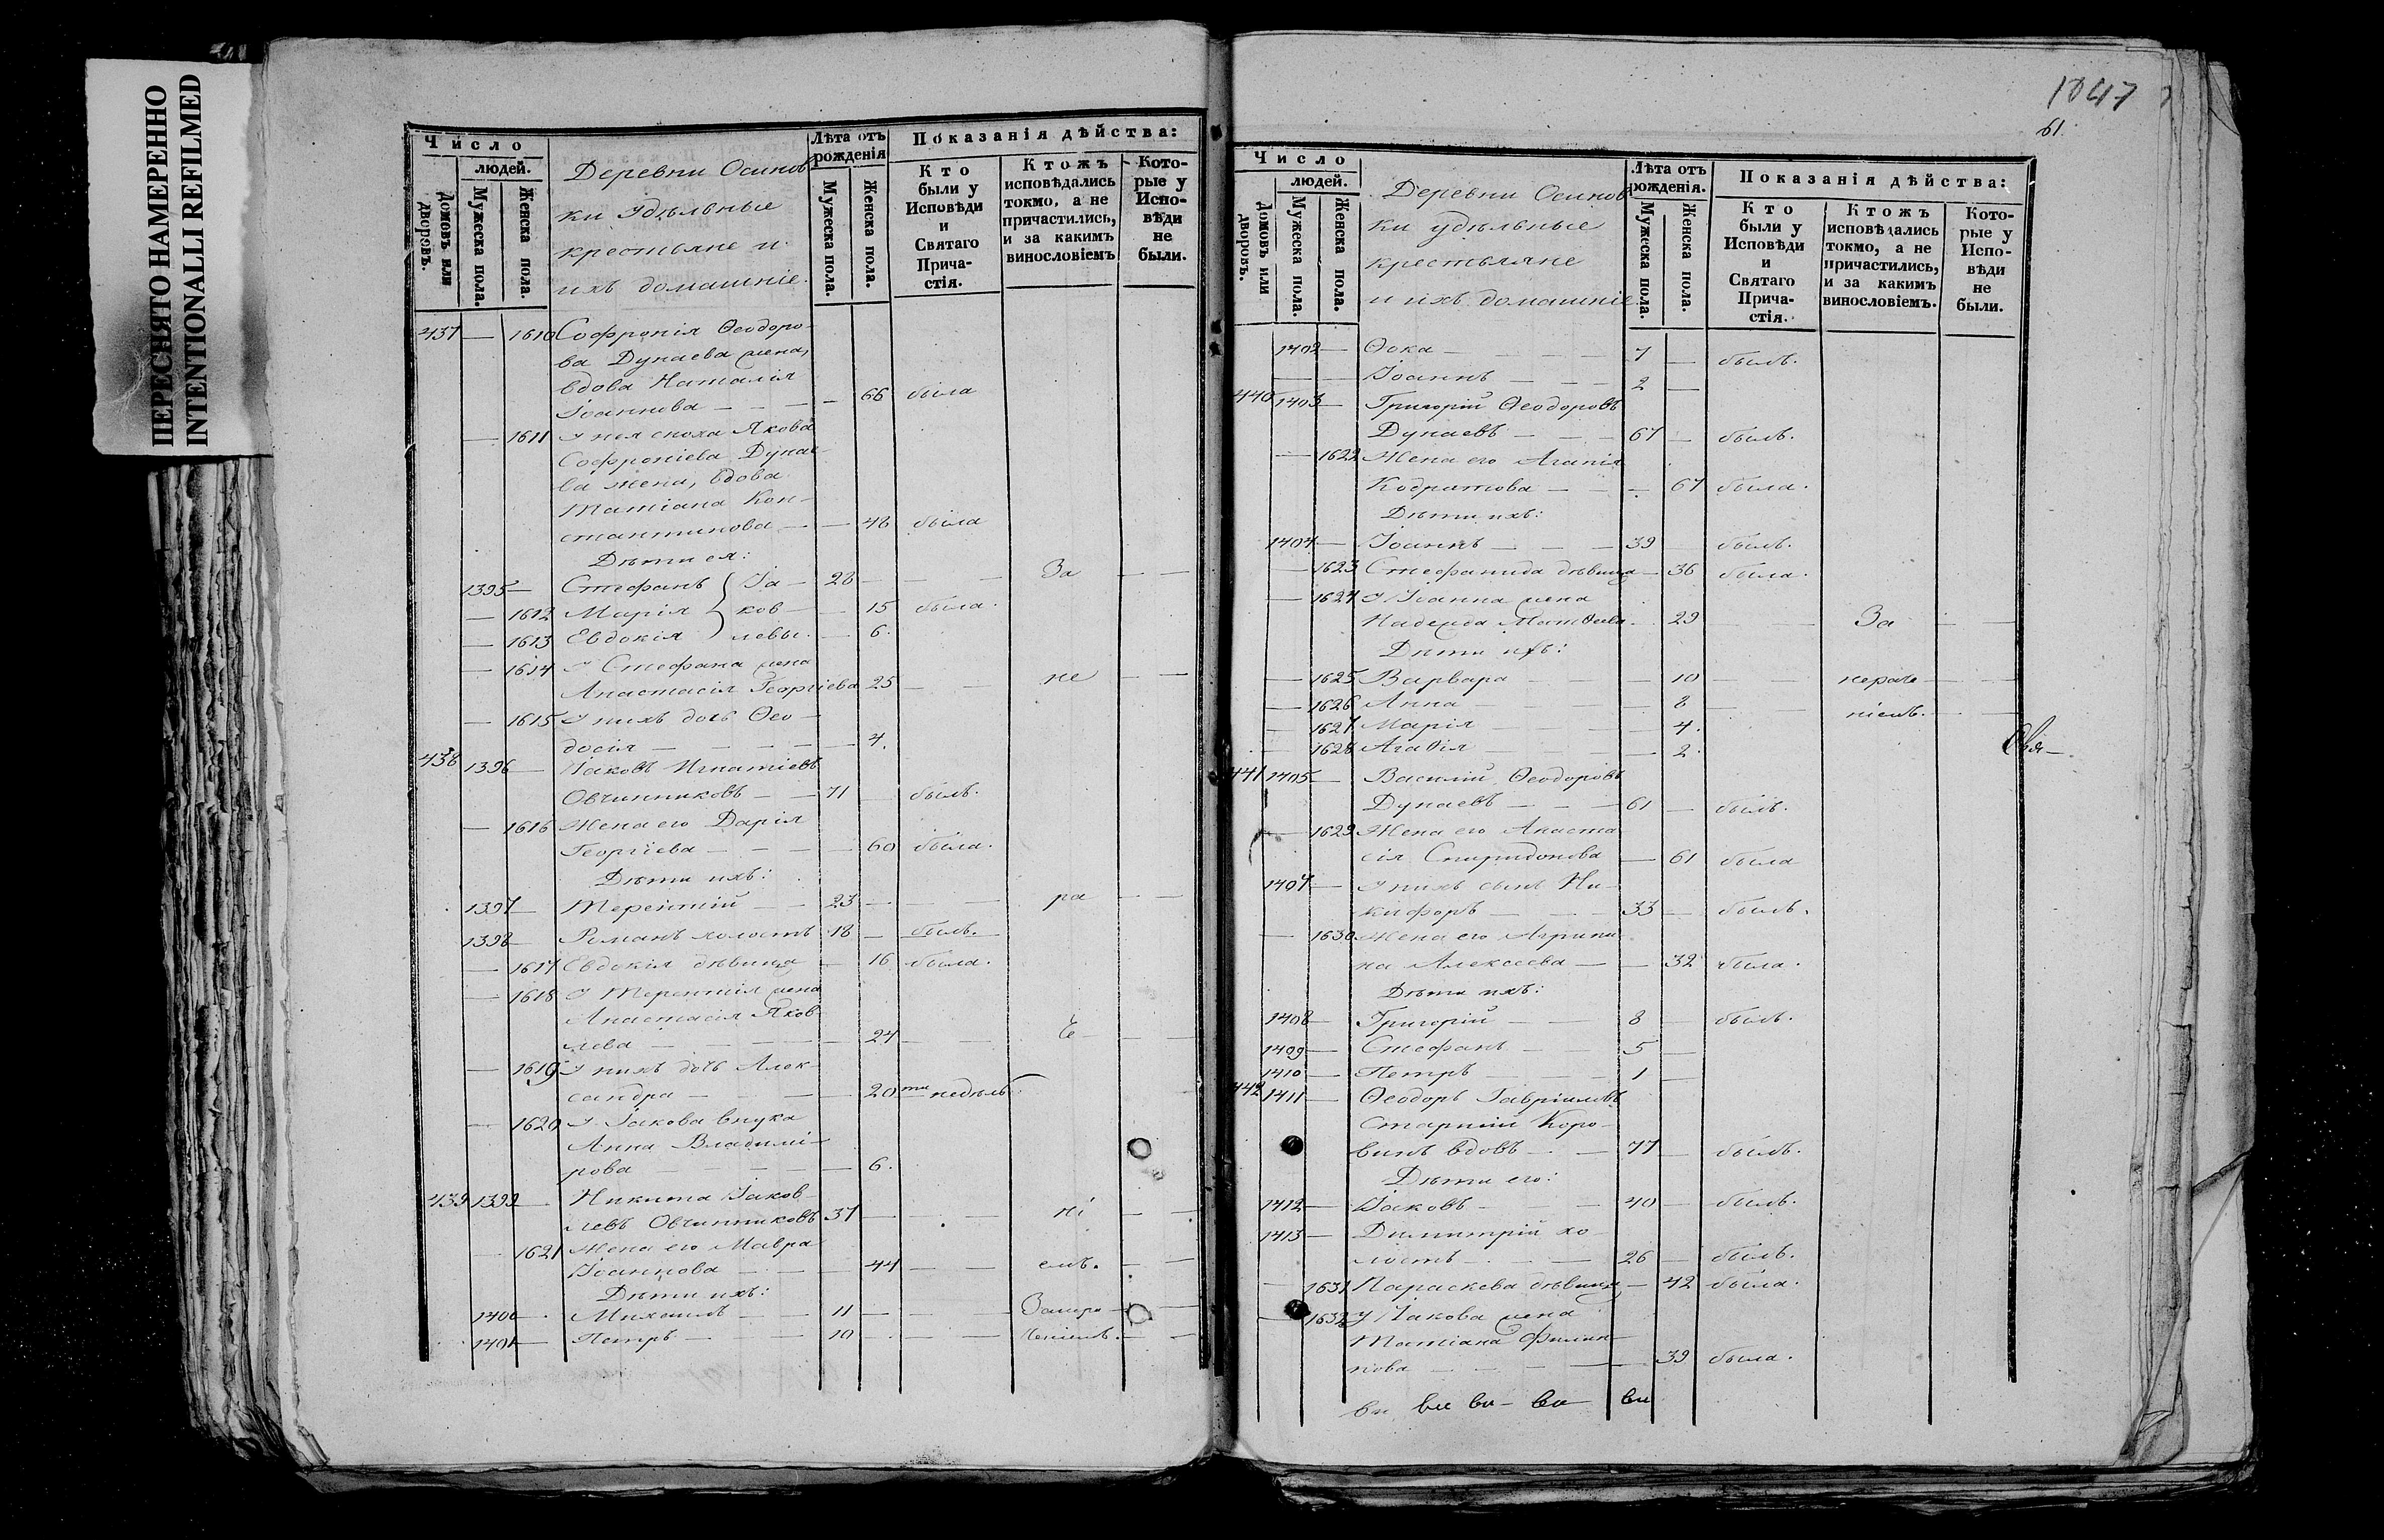 ПЕРЕСНЯТО НАМЕРЕННО
INTENTIONALLI REFILMED
Число
людей.
Домовъ или дворовъ.
Мужеска пола.
Женска пола.
Деревни Осинов
ки удѣльные
крестьяне и
ихъ домашніе.
Лѣта отъ рожденія
Мужеска пола.
Женска пола.
Показанія дѣйства:
Кто были у Исповѣди и Святаго Прича-стія.
Ктожъ исповѣдались токмо, а не причастились, и за какимъ винословіемъ
Кото-рые у Испо-вѣди не были.
437 — 1610 Софронія Ѳеодоро-
ва Дунаева жена,
вдова Наталія
Іоаннова — — — 66 была
— 1611 У нея сноха Якова
Софроніева Дунае-
ва жена, вдова
Татіана Кон-
стантинова — — 48 была
Дѣти ея:
1395 — Стефанъ Іа- 28 — — За — —
— 1612 Марія ков- — 15 была.
— 1613 Евдокія левы. — 6.
— 1614 У Стефана жена
Анастасія Георгіева 25 — — не — —
— 1615 У нихъ дочь Ѳео-
досія — — — — 4.
438 1396 — Іаковъ Игнатіевъ
Овчинниковъ — — 71 — былъ.
— 1616 Жена его Дарія
Георгіева — — — 60 была.
Дѣти ихъ:
1397 — Терентій — — 23 — — ра — —
1398 — Романъ холостъ 18 — былъ.
— 1617 Евдокія дѣвица — 16 была.
— 1618 У Терентія жена
Анастасія Яков-
лева — — — — 24 — — че — —
— 1619 У нихъ дочь Алек-
сандра — — — 20ти недѣль
— 1620 У Іакова внука
Анна Владимі-
рова — — — — 6.
439 1399 — Никита Іаков-
левъ Овчинниковъ 37 — — ні — —
— 1621 Жена его Мавра
Іоаннова — — — 44 — — емъ. — —
Дѣти ихъ:
1400 — Михаилъ — — 11 — — — —
1401 — Петръ — — 10 — — — —
1047
61.
Число
людей.
Домовъ или дворовъ.
Мужеска пола.
Женска пола.
Деревни Осинов
ки удѣльные
крестьяне
и ихъ домашніе
Лѣта отъ рожденія.
Мужеска пола.
Женска пола.
Показанія дѣйства:
Кто были у Исповѣди и Святаго Прича-стія.
Ктожъ исповѣдались токмо, а не причастились, и за какимъ винословіемъ.
Кото-рые у Испо-вѣди не были.
1402 — Ѳока — — — — 7 — былъ.
— — Іоаннъ — — — 2 —
440 1403 — Григорій Ѳеодоровъ
Дунаевъ — — — 67 — былъ.
— 1622 Жена его Агапія
Кодратова — — — 67 была.
Дѣти ихъ:
1404 — Іоаннъ — — — 39 — былъ.
— 1623 Стефанида дѣвица — 36 была.
— 1624 У Іоанна жена
Надежда Матѳеева. 29 — — За — —
Дѣти ихъ:
— 1625 Варвара — — — 10 — — нераче — —
— 1626 Анна — — — 8 — — ніемъ. — —
— 1627 Марія — — — 4.
— 1628 Агаѳія — — — 2.
441 1405 — Василій Ѳеодоровъ
Дунаевъ — — — 61 — былъ.
— 1629 Жена его Анаста
сія Спиридонова — 61 была
1407 — У нихъ сынъ Ни-
кифоръ — — — 33 — былъ.
— 1630 Жена его Агрипи
на Алексеева — — 32 была.
Дѣти ихъ:
1408 — Григорій — — 8 — былъ.
1409 — Стефанъ — — 5 —
1410 — Петръ — — 1 —
442 1411 — Ѳеодоръ Гавріиловъ
Старшій Коро-
винъ вдовъ — — 77 — былъ.
Дѣти его:
1412 — Іаковъ — — — 40 — былъ.
1413 — Димитрій хо-
лостъ — — — 26 — былъ.
— 1631 Параскева дѣвица — 42 была.
— 1632 У Іакова жена
Татіана Филип-
пова — — — — 39 была.